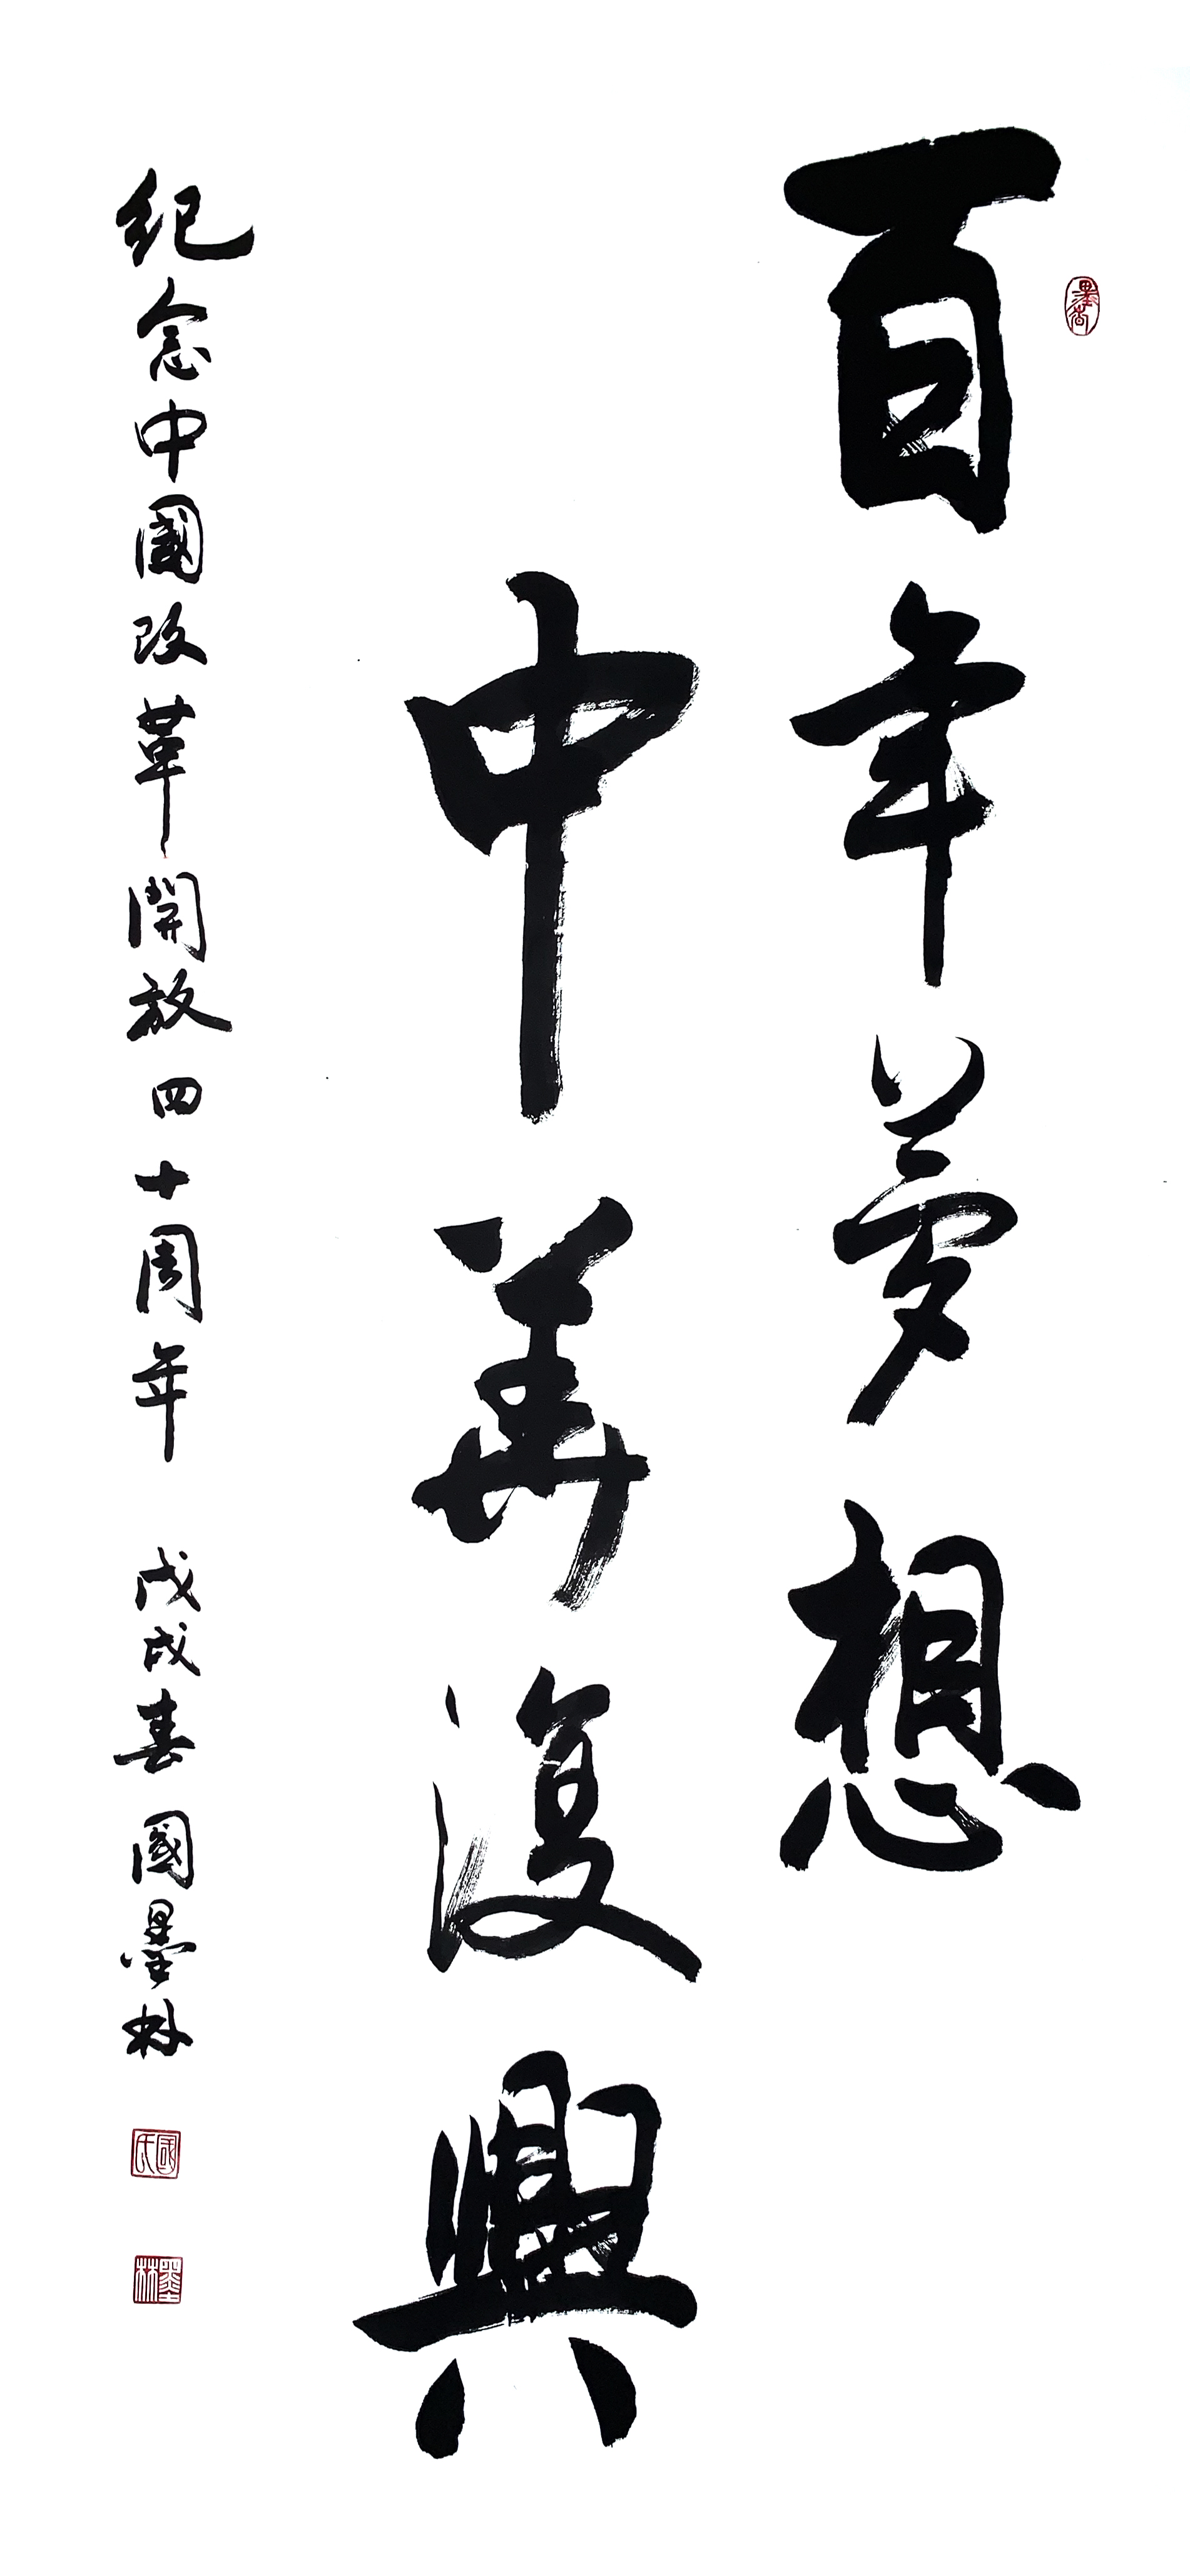 百年夢想
中華復興
紀念中國改革開放四十周年 戊戌春 國墨林
國氏
墨林